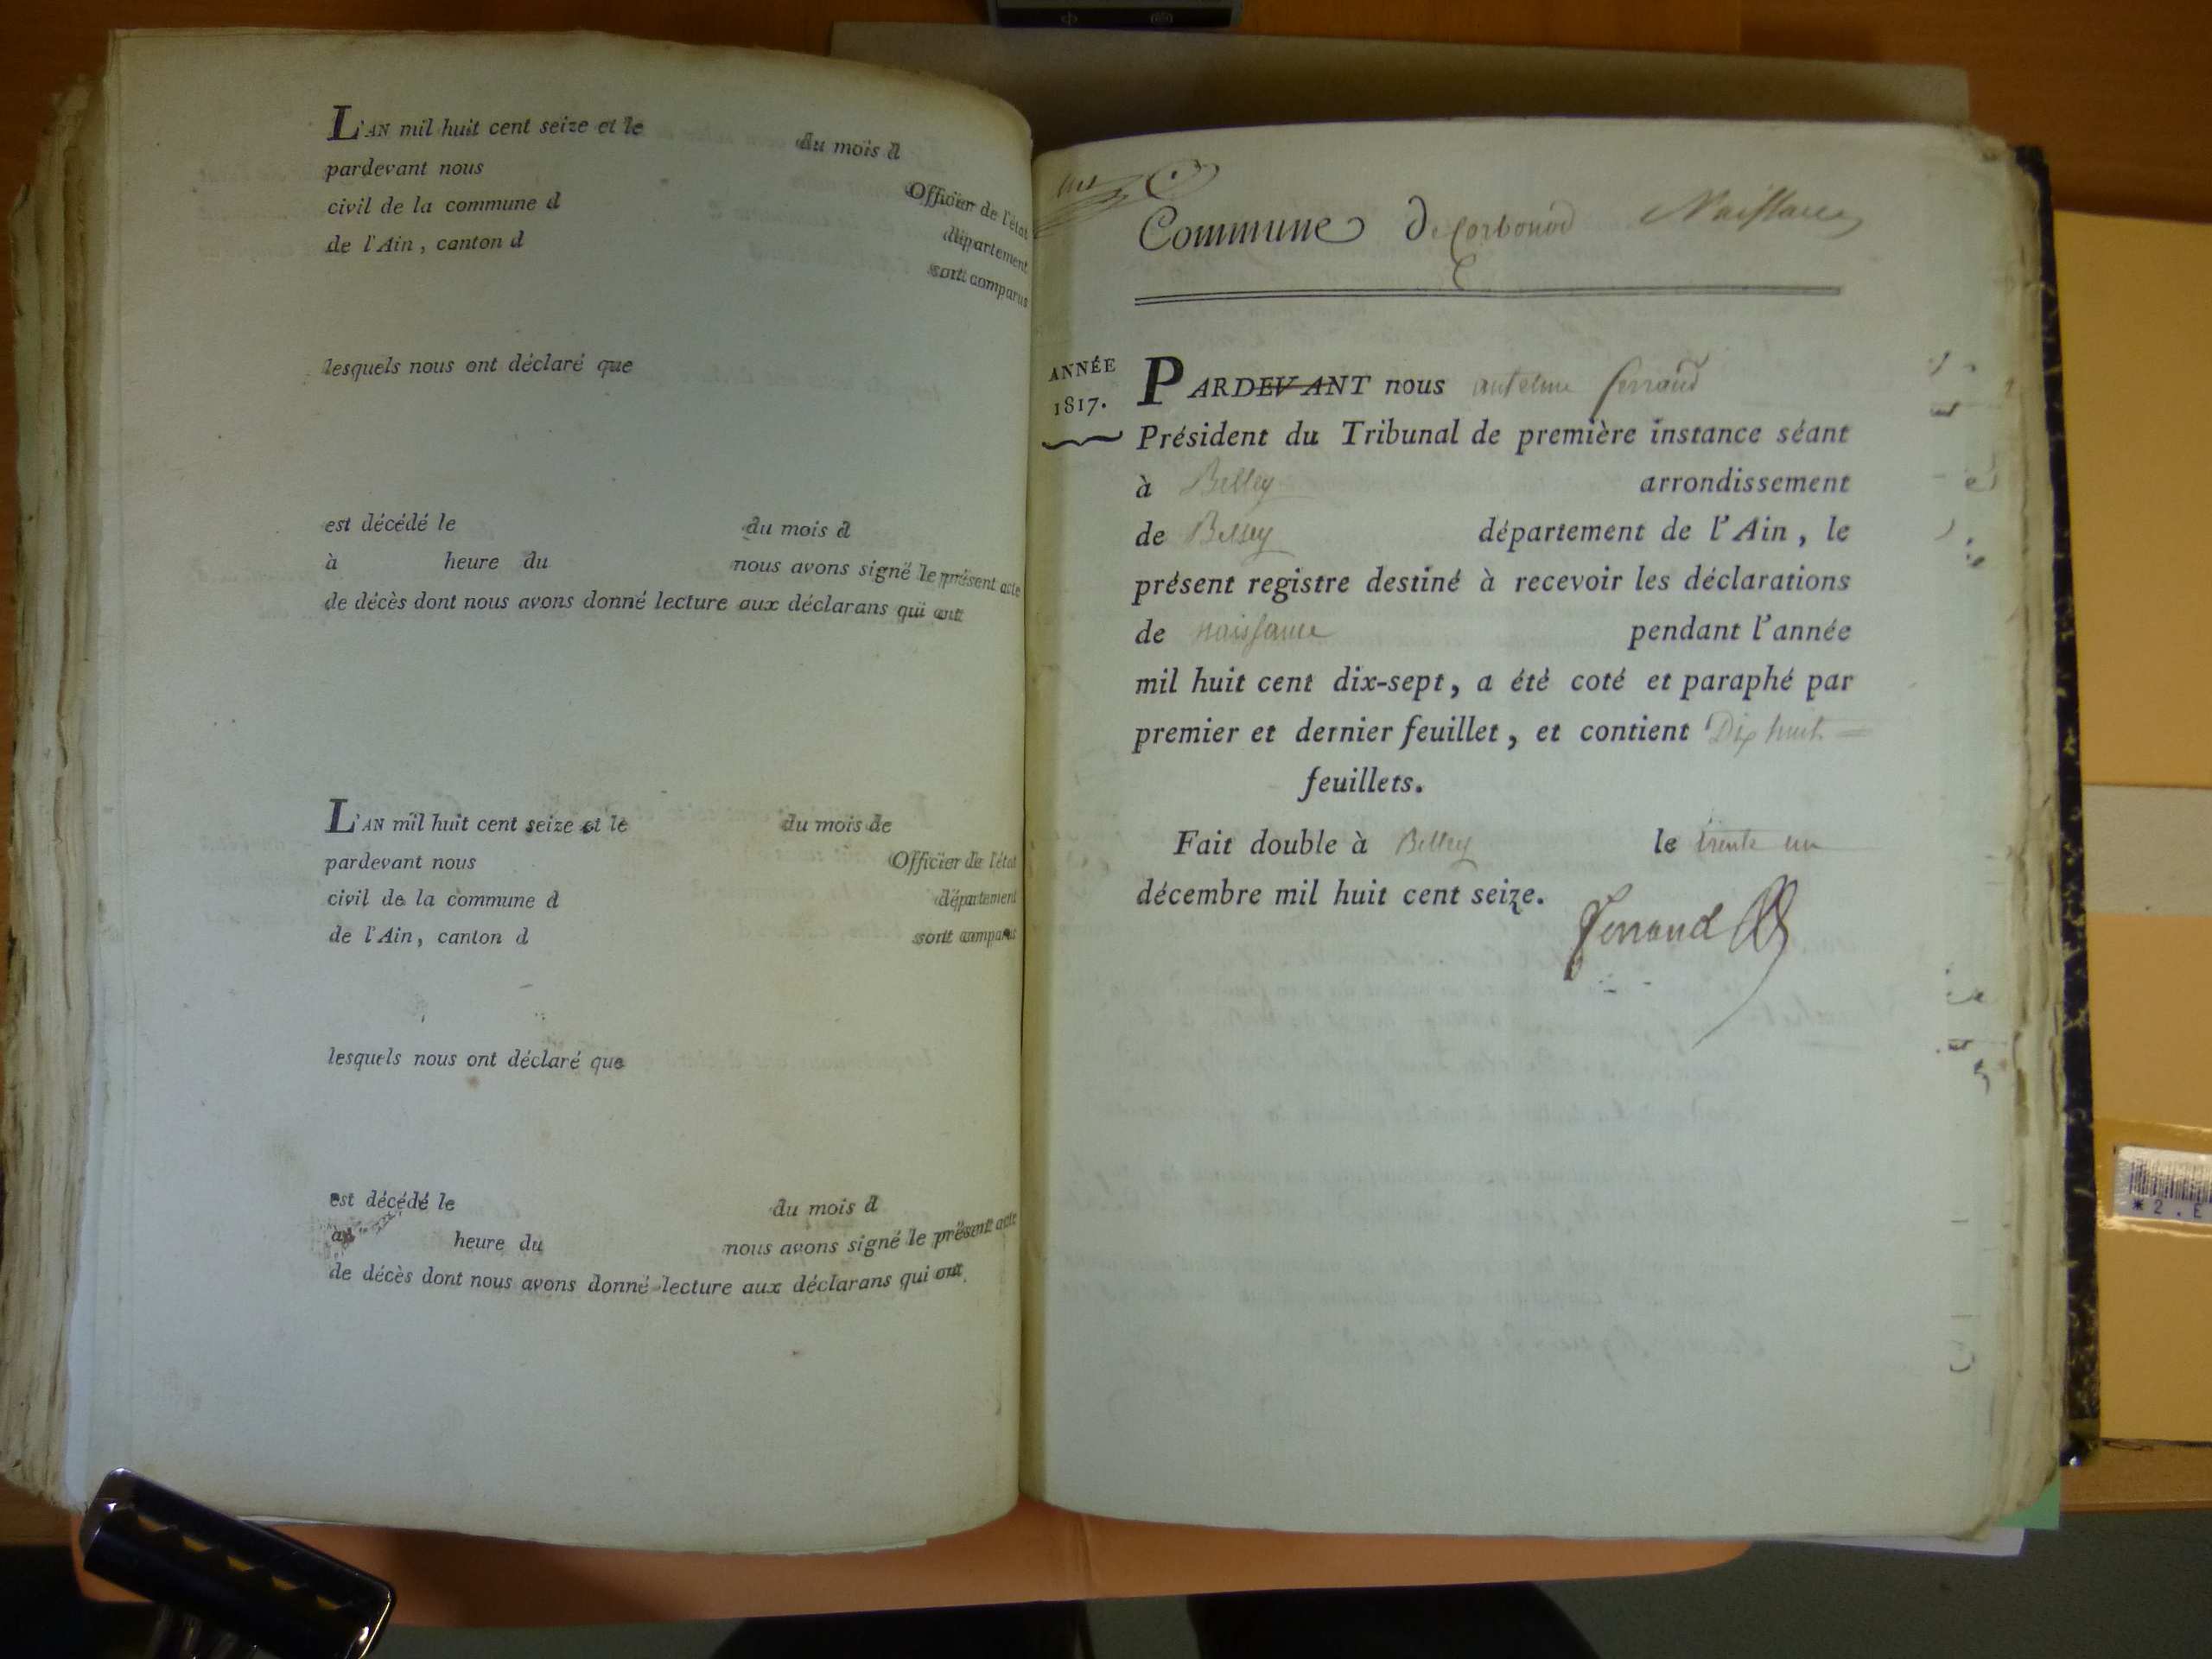 L'AN mil huit cent seize et le du mois d
pardevant nous Officier de l'état
civil de la commune d département
de l'Ain, canton d sont comparus
lesquels nous ont déclaré que
est décédé le du mois d
à heure du nous avons signé le présent acte
de décès dont nous avons donné lecture aux déclarans qui ont
L'AN mil huit cent seize et le du mois de
pardevant nous Officier de l'état
civil de la commune d département
de l'Ain, canton d sont comparut
lesquels nous ont déclaré que
est décédé le du mois d
à heure du nous avons signé le présent acte
de décès dont nous avons donné lecture aux déclarans qui ont
Commune De Corbonod Naissance
ANNÉE
1817.
PARDEVANT nous anselme ferrand
Président du Tribunal de première instance séant
à Belley arrondissement
de Belley département de l'Ain, le
présent registre destiné à recevoir les déclarations
de naissance pendant l'année
mil huit cent dix-sept, a été coté et paraphé par
premier et dernier feuillet, et contient Dix huit
feuillets.
Fait double à Belley le trente un
décembre mil huit cent seize.
ferrand
*2.E